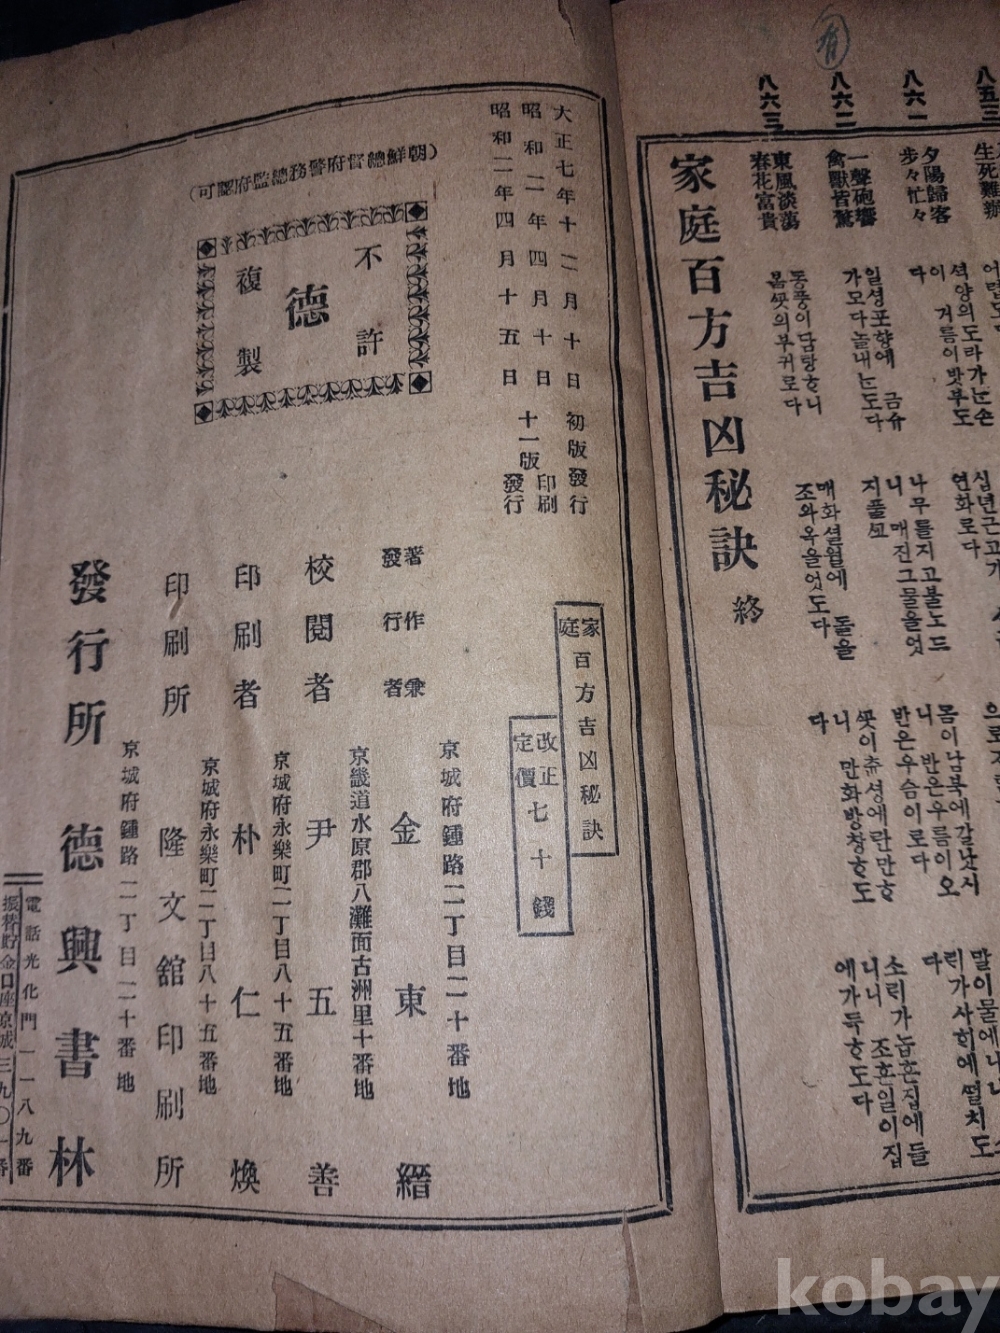 有
八五三
生死難辦
八六一
夕陽歸客
步々忙々
셕양의도라가는손
이 거름이밧부도
다
八六二
一聲砲響
禽獸皆驚
일셩포향에 금슈
가모다놀내는도다
八六三
東風淡蕩
春花富貴
동풍이담탕ᄒᆞ니
봄ᄭᅩᆺ의부귀로다
연화로다
나무틀지고불노드
니 매진그물을엇
지풀고
매화셜월에 돌을
조와옥을엇도다
몸이남북에갈낫시
니 반은우름이오
반은우슴이로다
ᄭᅩᆺ이츈셩에란만ᄒᆞ
니 만화방창ᄒᆞ도
다
말이물에나니 소
릭가사ᄒᆡ에ᄯᅥᆯ치도
다
소릭가놉흔집에들
니니 조흔일이집
에가득ᄒᆞ도다
家庭百方吉凶秘訣 終
大正七年十二月十日 初版發行
昭和二年四月十日 十一版印刷
昭和二年四月十五日 發行
(朝鮮總督府警務總監府認可)
不許
德
複製
家庭百方吉凶秘訣
改正定價七十錢
京城府鍾路二丁目二十番地
著作兼發行者 金東縉
京畿道水原郡八灘面古洲里十番地
校閱者 尹五善
京城府永樂町二丁目八十五番地
印刷者 朴仁煥
京城府永樂町二丁目八十五番地
印刷所 隆文舘印刷所
京城府鍾路二丁目二十番地
發行所 德興書林
電話光化門一一八九番
振替貯金口座京城三九〇一番
kobay